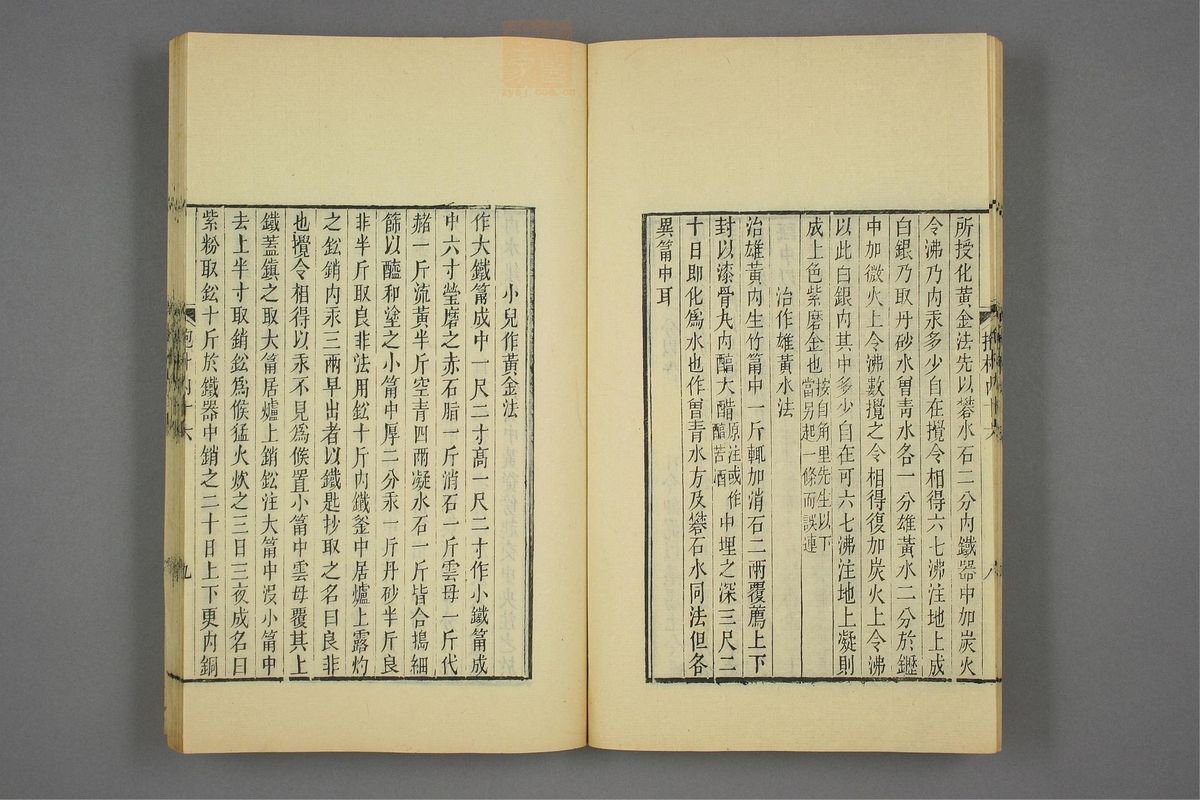 所授化黃金法先以礬水石二分內鐵器中加炭火
令沸乃內汞多少自在攪令相得六七沸注地上成
白銀乃取丹砂水曾青水各一分雄黃水二分於𨰝
中加微火上令沸數攪之令相得復加炭火上令沸
以此白銀內其中多少自在可六七沸注地上凝則
成上色紫磨金也按自角里先生以下當另起一條而誤連
治作雄黃水法
治雄黃內生竹筩中一斤輒加消石二兩覆薦上下
封以漆骨丸內醕大醋原注或作醕苦酒中埋之深三尺二
十日即化爲水也作曾青水方及礬石水同法但各
異筩中耳
八
小兒作黃金法
作大鐵筩成中一尺二寸高一尺二寸作小鐵筩成
中六寸瑩磨之赤石脂一斤消石一斤雲母一斤代
赭一斤流黃半斤空青四兩凝水石一斤皆合擣細
篩以醯和塗之小筩中厚二分汞一斤丹砂半斤良
非半斤取良非法用鈆十斤內鐵釜中居爐上露灼
之鈆銷內汞三兩早出者以鐵匙抄取之名曰良非
也攪令相得以汞不見爲候置小筩中雲母覆其上
鐵蓋鎮之取大筩居爐上銷鈆注大筩中沒小筩中
去上半寸取銷鈆爲候猛火炊之三日三夜成名曰
紫粉取鈆十斤於鐵器中銷之二十日上下更內銅
抱朴內十六
九